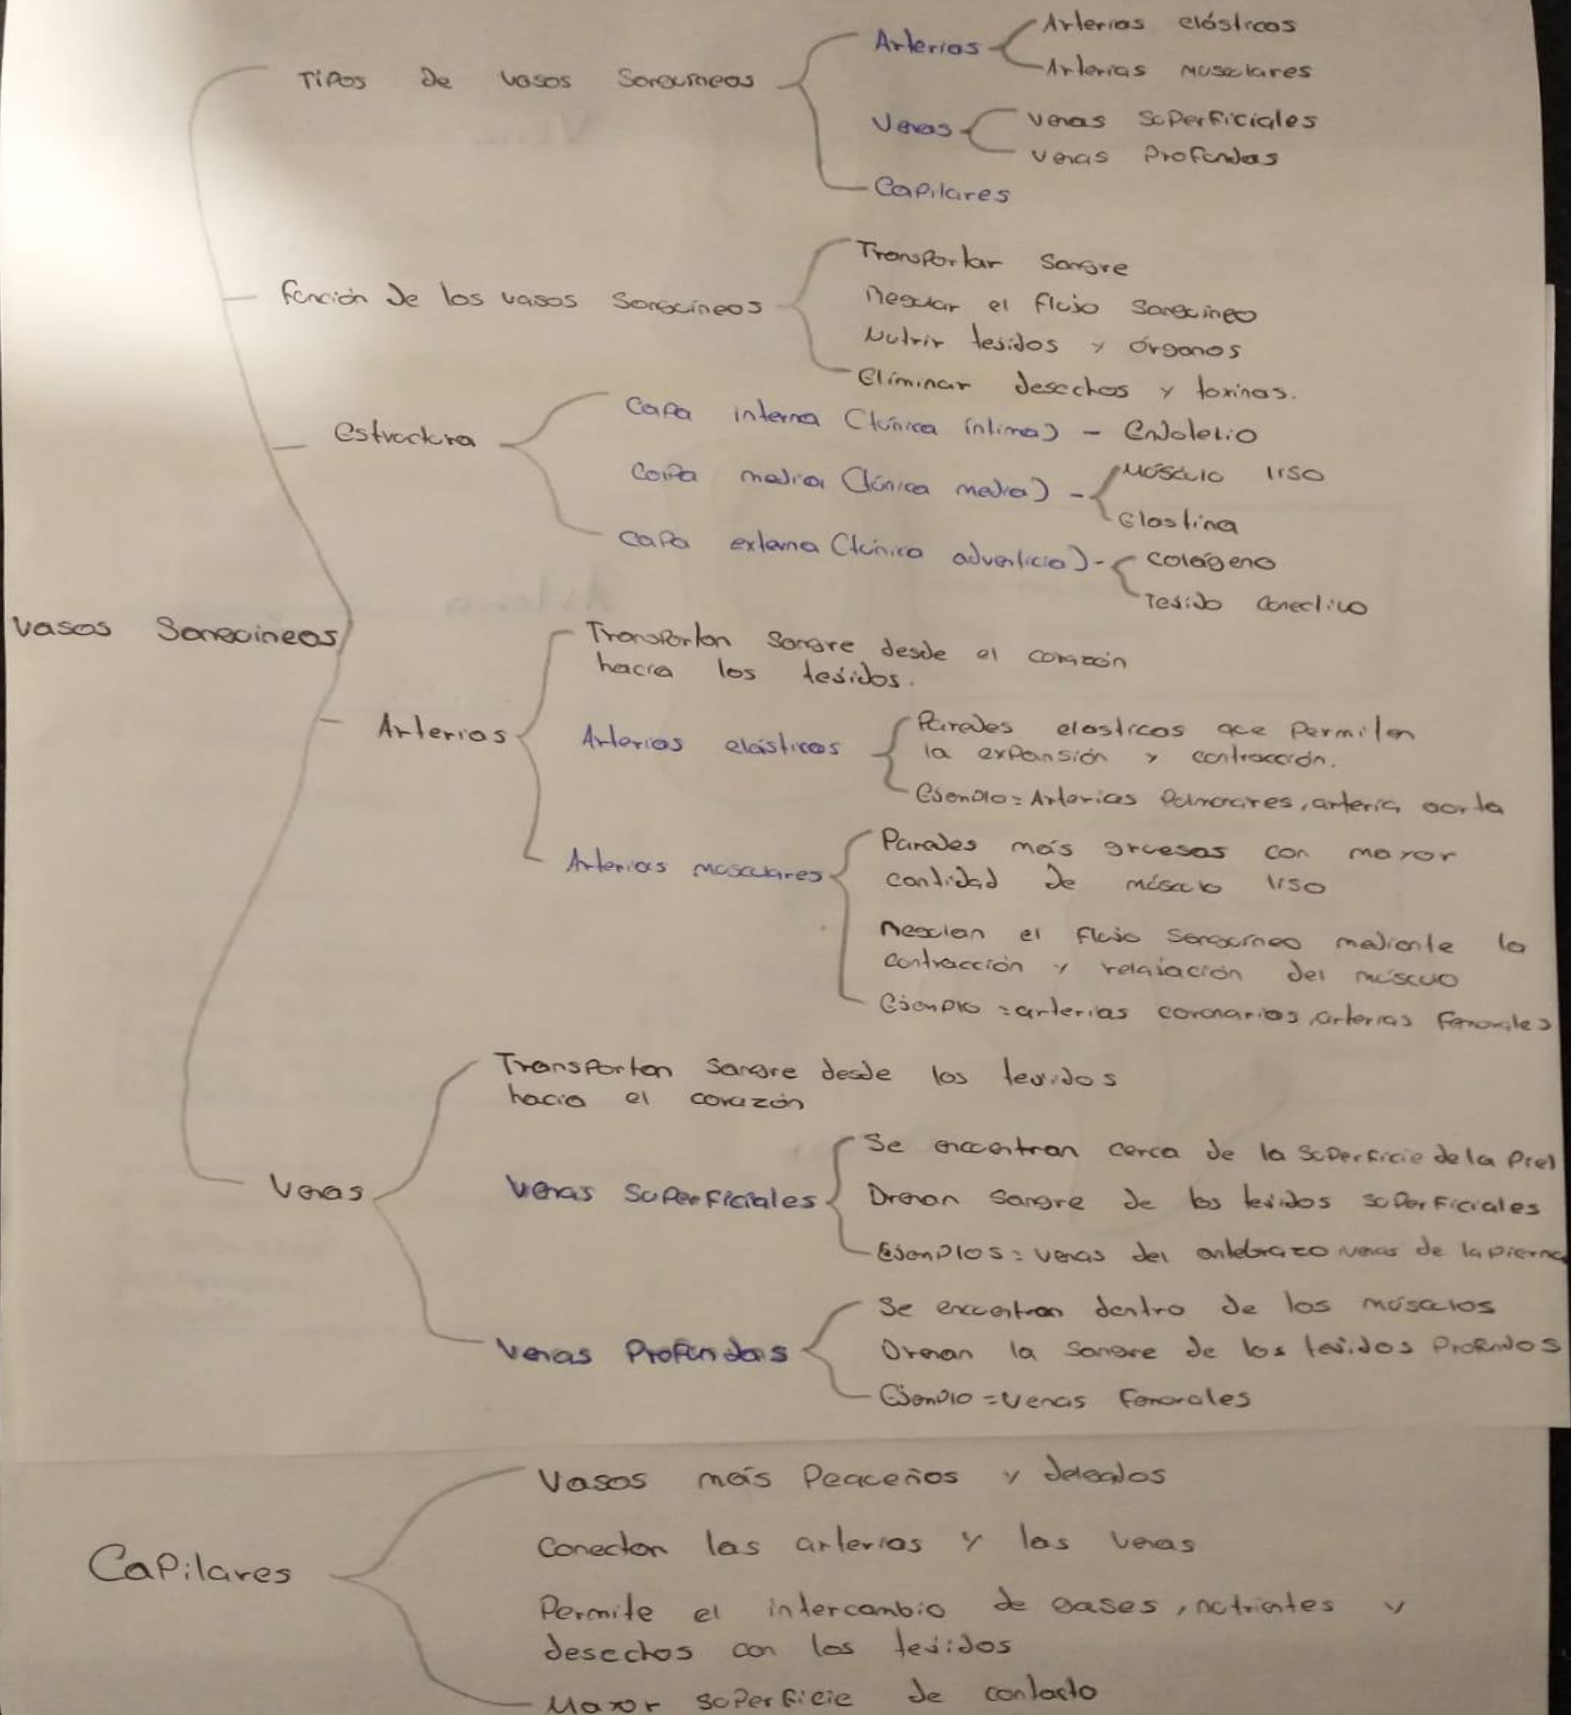 Tipos de vasos Sanguíneos
Arterias
Arterias elásticas
Arterias musculares
Venas
Venas superficiales
Venas Profundas
Capilares
función de los vasos sanguíneos
Transportar sangre
Regular el flujo sanguíneo
Nutrir tejidos y órganos
Eliminar desechos y toxinas.
Estructura
Capa interna (túnica íntima) - Endotelio
Capa media (túnica media) -
Músculo liso
Elastina
Capa externa (túnica adventicia) -
Colágeno
Tejido conectivo
Vasos Sanguíneos
Arterias
Transportan sangre desde el corazón
hacia los tejidos.
Arterias elásticas
Paredes elasticas que permiten
la expansión y contracción.
Ejemplo = Arterias pulmonares, arteria aorta
Arterias musculares
Paredes más gruesas con mayor
cantidad de músculo liso
Regulan el flujo sanguíneo mediante la
contracción y relajación del músculo
Ejemplo = arterias coronarias, arterias femorales
Venas
Transportan sangre desde los tejidos
hacia el corazón
Venas superficiales
Se encuentran cerca de la superficie de la piel
Drenan sangre de los tejidos superficiales
Ejemplos = venas del antebrazo venas de la pierna
Venas Profundas
Se encuentran dentro de los músculos
Drenan la sangre de los tejidos profundos
Ejemplo = venas femorales
Capilares
Vasos más pequeños y delgados
Conectan las arterias y las venas
Permite el intercambio de gases, nutrientes y
desechos con los tejidos
Mayor superficie de contacto